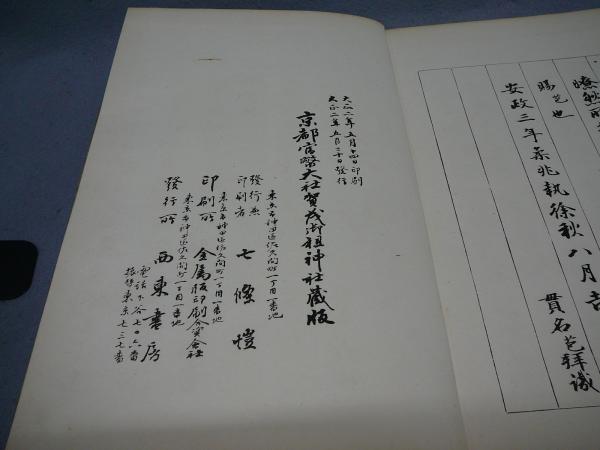 瞭然
賜芑也
安政三年柔兆執徐秋八月吉
貫名芑拜識
大正二年五月十四日印刷
大正二年五月二十日發行
京都官幣大社賀茂御祖神社藏版
東京市神田區佐久間町一丁目一番地
發行兼
印刷者 七條愷
東京市神田區佐久間町一丁目一番地
印刷所 金属版印刷合資會社
東京市神田區佐久間町一丁目一番地
發行所 西東書房
電話下谷七〇六番
振替東京七三七番